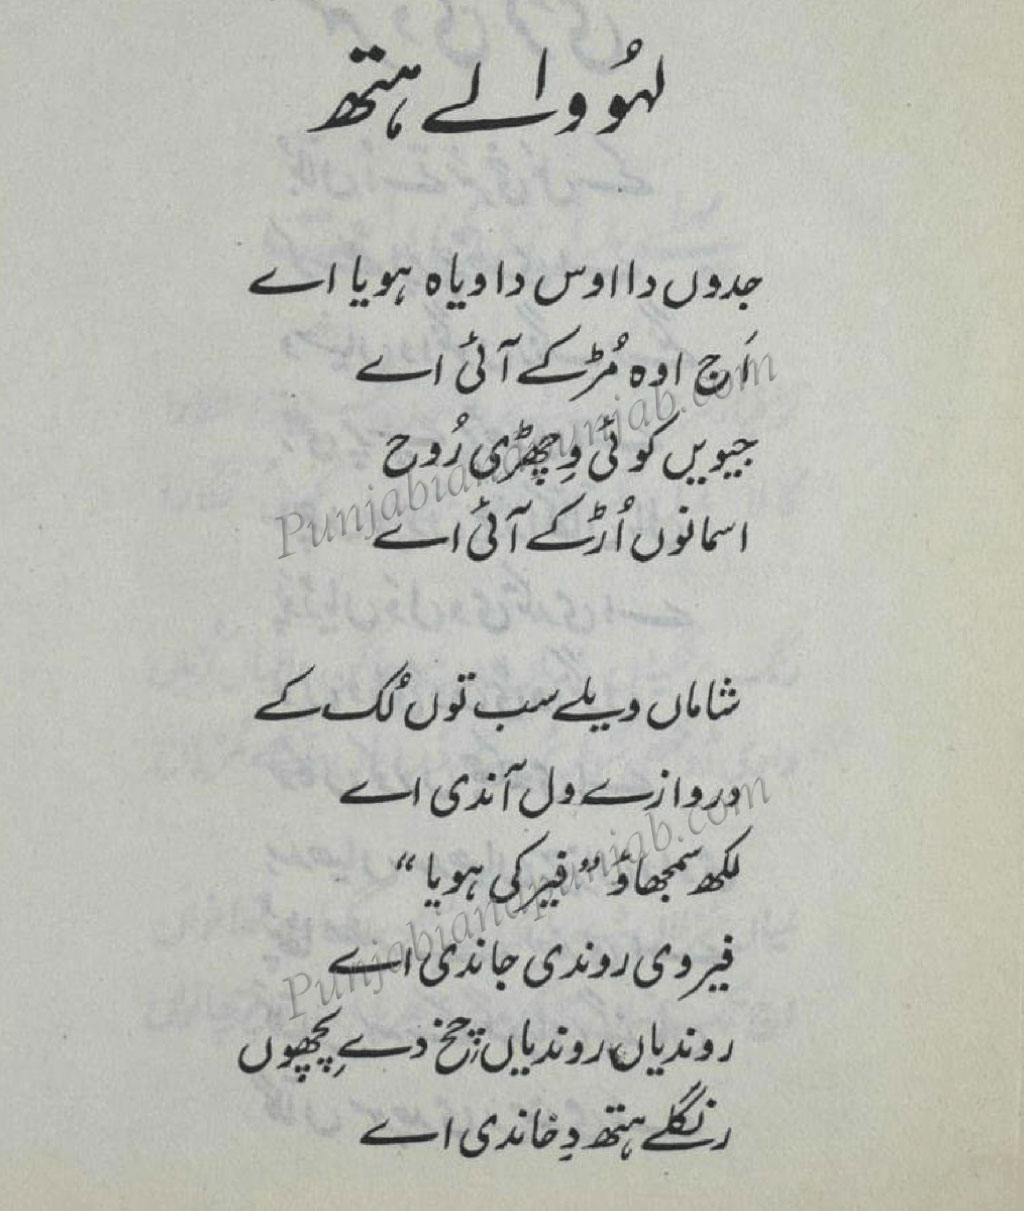 لہُو والے ہتھ
جدوں دا اوس دا ویاہ ہویا اے
اَج اوہ مُڑ کے آئی اے
جیویں کوئی وِچھڑی رُوح
اسمانوں اُڑ کے آئی اے
شاماں ویلے سب توں لُک کے
دروازے ول آندی اے
لکھ سمجھاؤ ”فیر کی ہویا“
فیر وی روندی جاندی اے
روندیاں روندیاں چِخ دے پِچھوں
رنگلے ہتھ دِخاندی اے
Punjabiandpunjab.com
Punjabiandpunjab.com